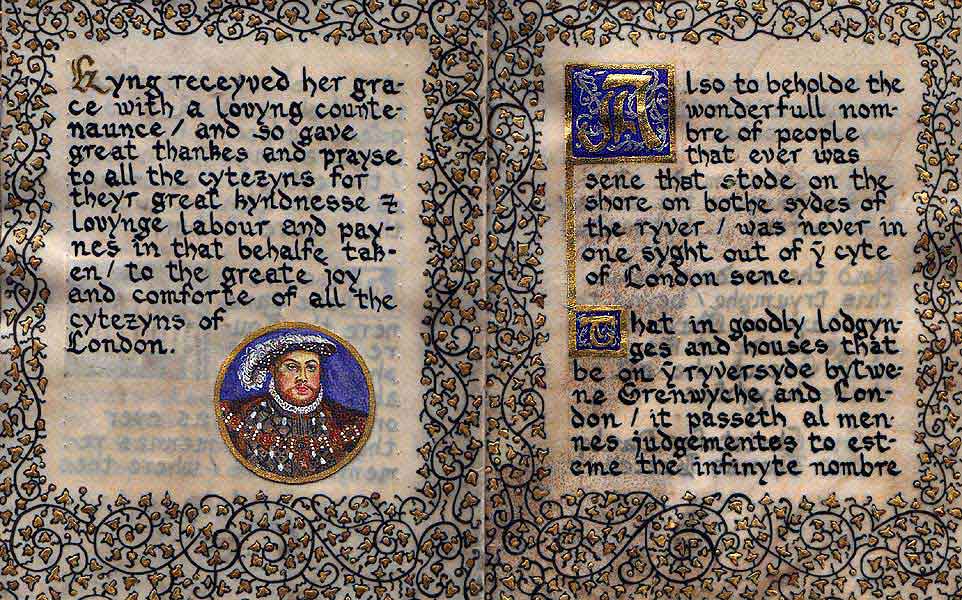 Kyng receyved her gra-
ce with a lovyng counte-
naunce / and so gave
great thankes and prayse
to all the cytezyns for
theyr great kyndnesse ⁊
lovynge labour and pay-
nes in that behalfe tak-
en / to the greate joy
and comforte of all the
cytezyns of
London.
Also to beholde the
wonderfull nom-
bre of people
that ever was
sene that stode on the
shore on bothe sydes of
the ryver / was never in
one syght out of ẏ cyte
of London sene.
That in goodly lodgyn-
ges and houses that
be on ẏ ryversyde bytwe-
ne Grenwyche and Lon-
don / it passeth al men-
nes judgementes to est-
eme the infinyte nombre